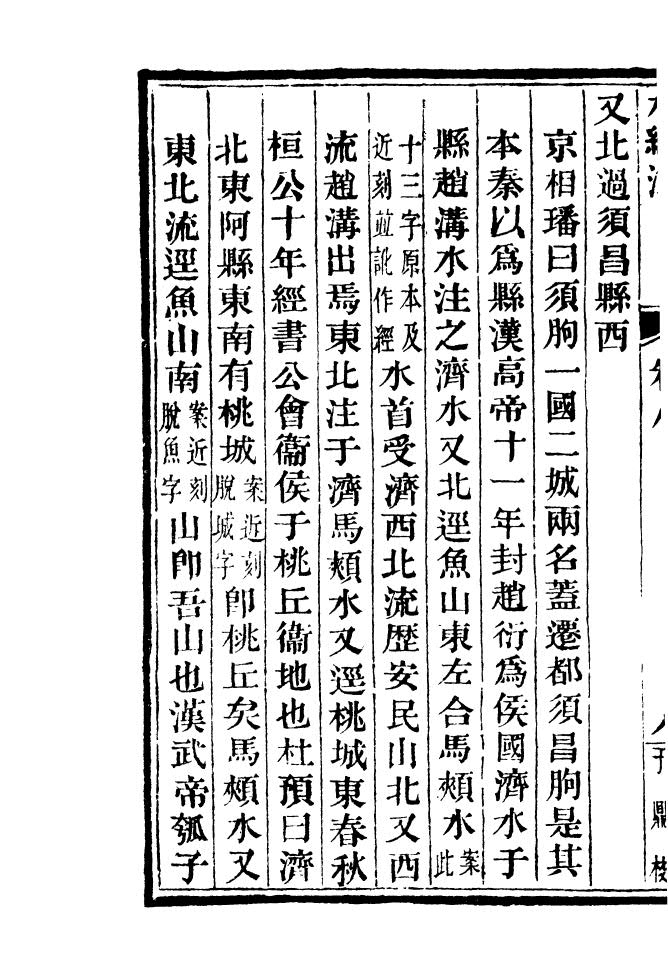 又北過須昌縣西
京相璠曰須朐一國二城兩名蓋遷都須昌朐是其
本秦以爲縣漢高帝十一年封趙衍爲侯國濟水于
縣趙溝水注之濟水又北逕魚山東左合馬頰水案此
十三字原本及近刻並訛作經水首受濟西北流歷安民山北又西
流趙溝出焉東北注于濟馬頰水又逕桃城東春秋
桓公十年經書公會衞侯于桃丘衞地也杜預曰濟
北東阿縣東南有桃城案近刻脫城字卽桃丘矣馬頰水又
東北流逕魚山南案近刻脫魚字山卽吾山也漢武帝瓠子